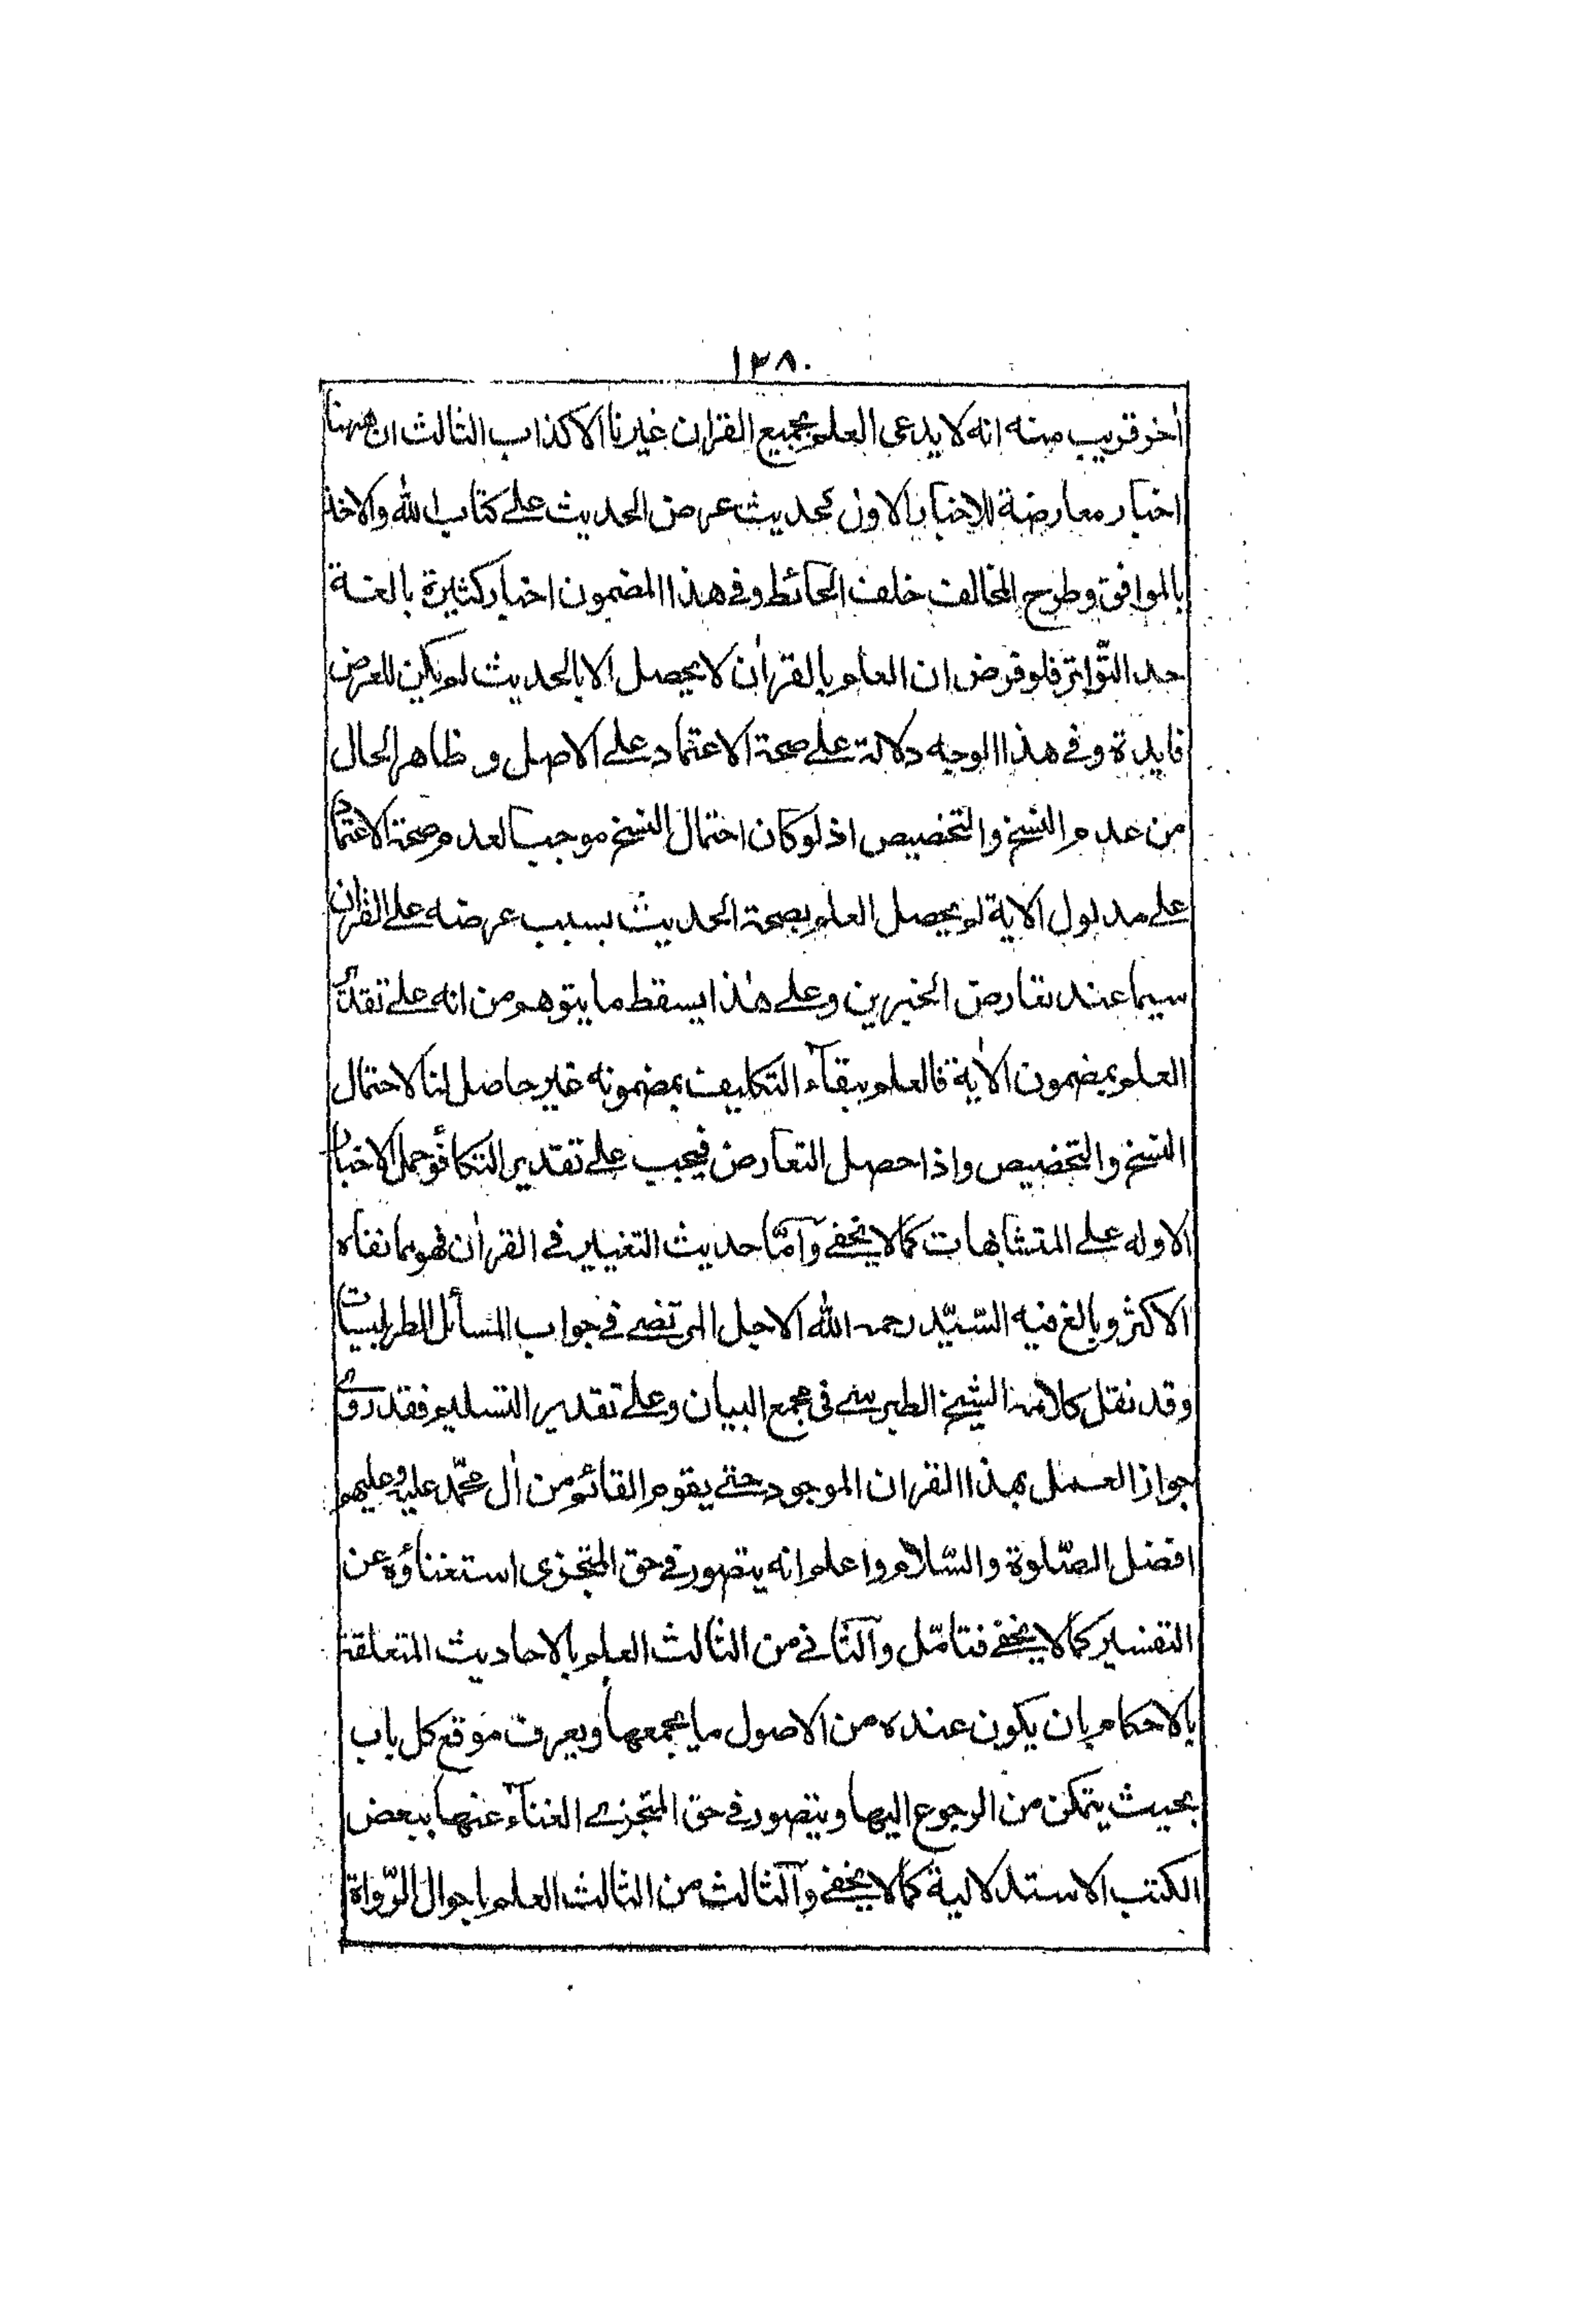 ١٢٨٠
اٰخر قريب منه انه لا يدعى العلم بجميع القران غيرنا الا كذاب الثالث ان ههنا
اخبار معارضة للاخبار الاول كحديث عرض الحديث على كتاب الله والاخذ
بالموافق وطرح المخالف خلف الحائط وفى هذا المضمون اخبار كثيرة بالغة
حد التّواتر فلو فرض ان العلم بالقراٰن لا يحصل الا بالحديث لم يكن للعرض
فايدة وفى هذا الوجه دلالة على صحة الاعتماد على الاصل و ظاهر الحال
من عدم النسخ والتخصيص اذ لو كان احتمال النسخ موجبا لعدم صحة الاعتماد
على مدلول الاية لم يحصل العلم بصحة الحديث بسبب عرضه على القران
سيما عند تعارض الخبرين وعلى هٰذا يسقط ما يتوهم من انه على تقدير
العلم بمضمون الاٰية فالعلم ببقآء التكليف بمضمونه غير حاصل لنا لاحتمال
النسخ والتخصيص واذا حصل التعارض فيجب على تقدير التكافؤ حمل الاخبار
الاوله على المتشابهات كما لا يخفى وآمّا حديث التغيير فى القراٰن فهو مما نفاه
الاكثر وبالغ فيه السّيّد رحمه الله الاجل المرتضى فى جواب المسائل الطرابلسيات
وقد نقل كلامه الشيخ الطبرسى فى مجمع البيان وعلى تقدير التسليم فقد روى
جواز العمل بهذا القران الموجود حتى يقوم القائم من اٰل محمّد عليه وعليهم
افضل الصّلوة والسّلام واعلم انه يتصور فى حق المتجزى استغناؤه عن
التفسير كما لا يخفى فتامّل وآلثانى من الثالث العلم بالاحاديث المتعلقة
بالاحكام بان يكون عنده من الاصول ما يجمعها ويعرف موقع كل باب
بحيث يتمكن من الرجوع اليها ويتصور فى حق المتجزى الغنآء عنها ببعض
الكتب الاستدلالية كما لا يخفى وآلثالث من الثالث العلم باحوال الرّواة